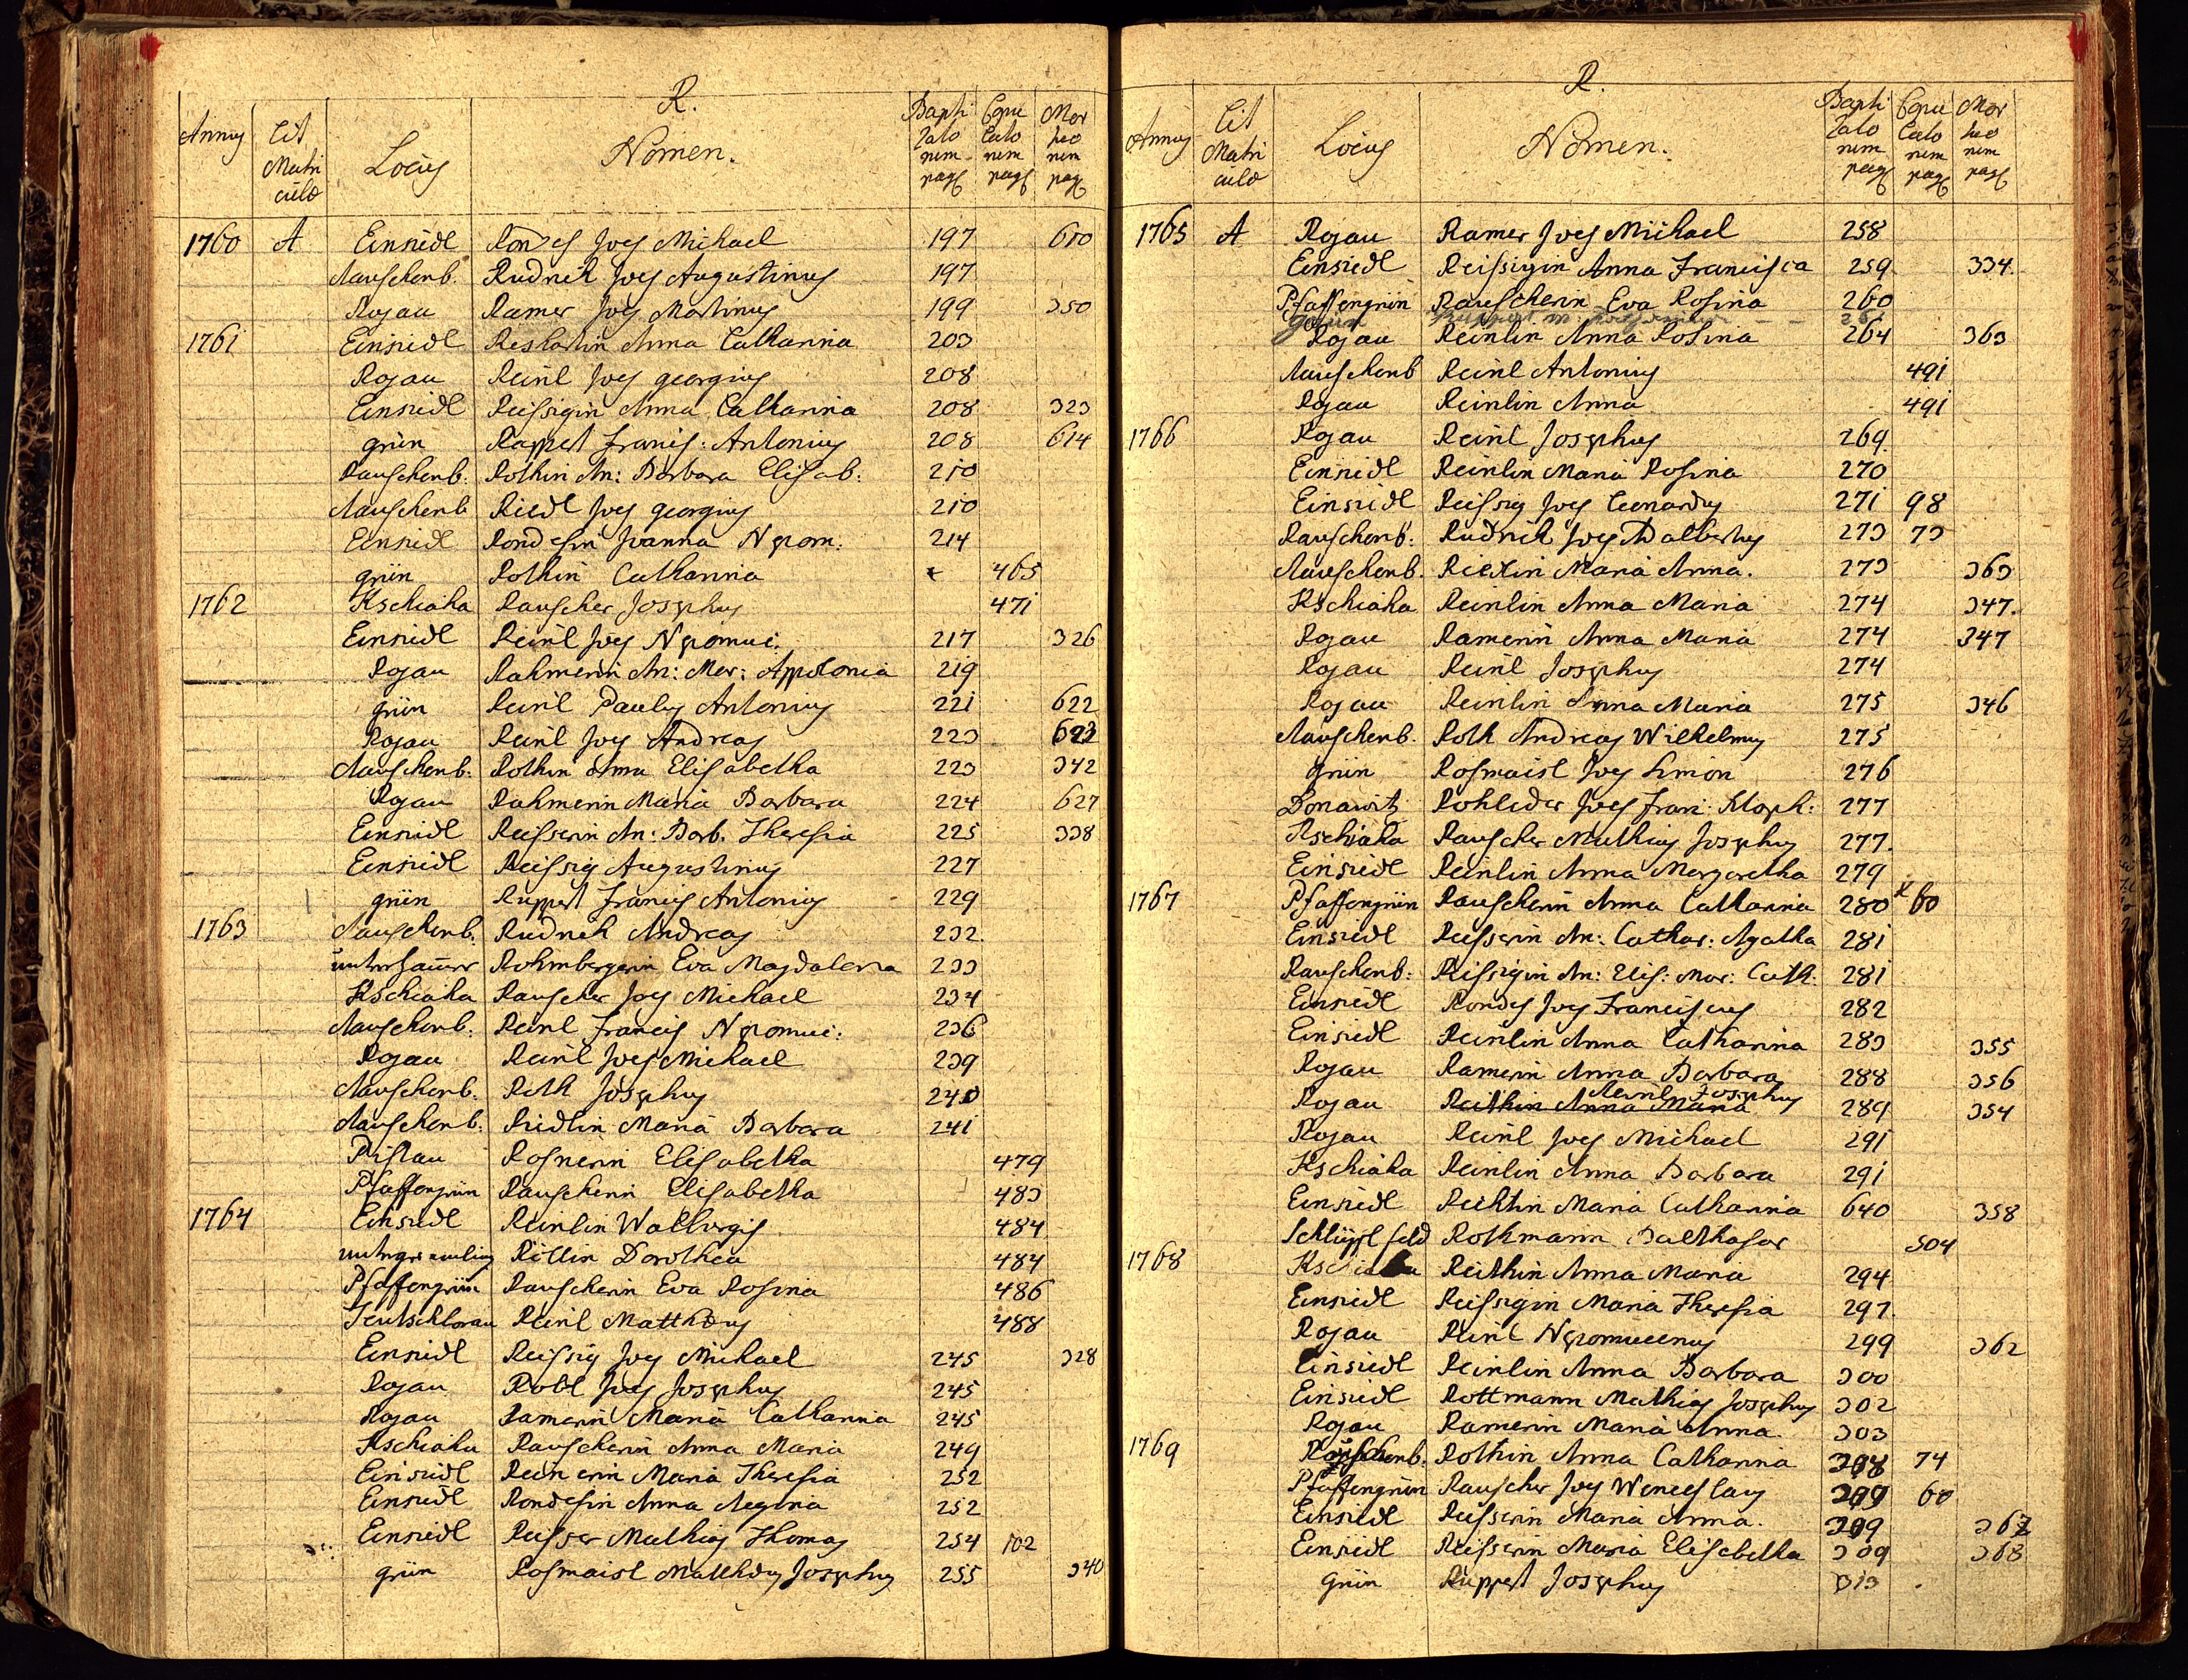 R.
Annus Lit Matri culæ Locus Nomen. Bapti zato rum pag Copu lato rum pag Mor tuo rum pag
1760 A Einsiedl Rondes Joes Michael 197 610
Rauschenb. Rudrich Joes Augustinus 197
Rojau Ramer Joes Martinus 199 350
1761 Einsiedl Anna Catharina 203
Rojau Reinl Joes georgius 208
Einsiedl Reissigin Anna Catharina 208 323
grün Rappert Francis: Antonius 208 614
Rauschenb: Rothin An: Barbara Elisab: 210
Rauschenb Riedl Joes georgius 210
Einsiedl Rondesin Joanna Nepom. 214
grün Rothin Catharina 465
1762 Kschiaha Rauscher Josephus 471
Einsiedl Reinl Joes Nepomuc. 217 326
Rojau Rahmerin An: Mar: Appolonia 219
grün Reinl Paulus Antonius 221 622
Rojau Reinl Joes Andreas 223 623
Rauschenb: Rothin Anna Elisabetha 223 342
Rojau Rahmerin Maria Barbara 224 627
Einsiedl Reisserin An: Barb. Theresia 225 338
Einsiedl Reissig Augustinus 227
grün Ruppert Francis Antonius 229
1763 Rauschenb. Rudrich Andreas 232
unterhamer Rohmbergerin Eva Magdalena 233
Kschiaha Rauscher Joes Michael 234
Rauschenb: Reinl Francis Nepomuc: 236
Rojau Reinl Joes Michael 239
Rauschenb. Roth Josephus 240
Rauschenb: Riedlin Maria Barbara 241
Pistau Rosnerin Elisabetha 479
Pfaffengrün Rauscherin Elisabetha 483
1764 Einsiedl Reinlin Walburgis 484
Dorothea 484
Pfaffengrün Rauscherin Eva Rosina 486
Teutschlorau Reinl Matthæus 488
Einsiedl Reissig Joes Michael 245 328
Rojau Robl Joes Josephus 245
Rojau Ramerin Maria Catharina 245
Kschiaha Rauscherin Anna Maria 249
Einsiedl Maria Theresia 252
Einsiedl Rondesin Anna Regina 252
Einsiedl Reisser Mathias Thomas 254 102
grün Rosmaisl Matthæus Josephus 255 340
R.
Annus Lit Matri culæ Locus Nomen. Bapti zato rum pag Copu lato rum pag Mor tuo rum pag
1765 A Rojau Ramer Joes Michael 258
Einsiedl Reissigin Anna Francisca 259 334.
Pfaffengrün Rauscherin Eva Rosina 260
Rojau Reinlin Anna Rosina 264 363
Rauschenb Reinl Antonius 491
Rojau Reinlin Anna 491
1766 Rojau Reinl Josephus 269
Einsiedl Reinlin Maria Rosina 270
Einsiedl Reissig Joes Leonardus 271 98
Rauschenb: Rudrich Joes Adalbertus 273 73
Rauschenb. Maria Anna. 273 363
Kschiaha Reinlin Anna Maria 274 347.
Rojau Ramerin Anna Maria 274 347
Rojau Reinl Josephus 274
Rojau Reinlin Anna Maria 275 346
Rauschenb. Roth Andreas Wilhelmus 275
grün Rosmaisl Joes Simon 276
Donawitz Rohleder Joes Fran: Xloph: 277
Kschiaha Rauscher Mathias Josephus 277.
Einsiedl Reinlin Anna Margaretha 279
1767 Pfaffengrün Rauscherin Anna Catharina 280 x 60
Einsiedl Reisserin An: Cathar: Agatha 281
Rauschenb: Reissigin An: Elis: Mar: Cath: 281
Einsiedl Rondes Joes Franciscus 282
Einsiedl Reinlin Anna Catharina 283 355
Rojau Ramerin Anna Barbara 288 356
Reinl Josephus
Rojau Reithin Anna Maria 289 354
Rojau Reinl Joes Michael 291
Kschiaha Reinlin Anna Barbara 291
Einsiedl Maria Catharina 640 358
Rothmann Balthasar 504
1768 Reithin Anna Maria 294
Einsiedl Reissigin Maria Theresia 297.
Rojau Reinl Nepomucenus 299 362
Einsiedl Reinlin Anna Barbara 300
Einsiedl Rottmann Mathias Josephus 302
Rojau Ramerin Maria Anna 303
1769 Rauschenb. Rothin Anna Catharina 308 74
Pfaffengrün Rauscher Joes Wenceslaus 309 60
Einsiedl Reisserin Maria Anna. 309 367
Einsiedl Reisserin Maria Elisabetha 309 368
Grün Ruppert Josephus 313